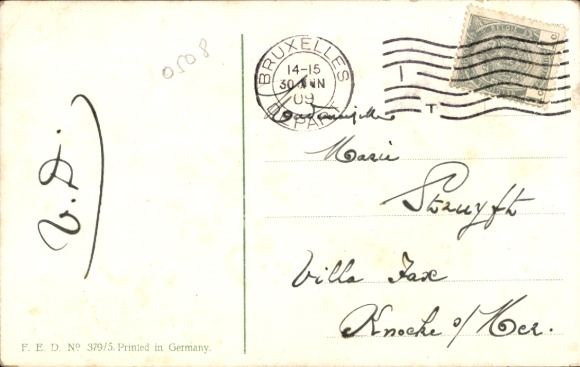 0508
BRUXELLES
14-15
30
09
DEPART
BELGIE
T
Marie
Struyft
Villa Fax
Knocke s/Mer.
V. D.
F. E. D. Nº 379/5. Printed in Germany.